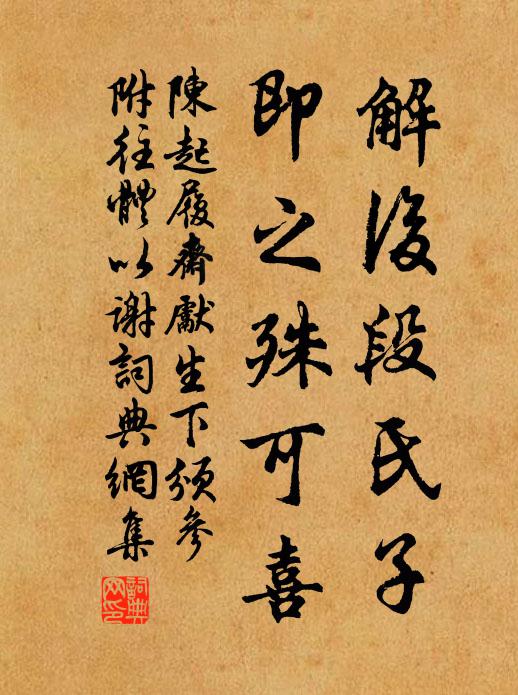 解後段氏子
即之殊可喜
陳起履齋獻生下頻參
附往體以謝詞典網集
詞典網印